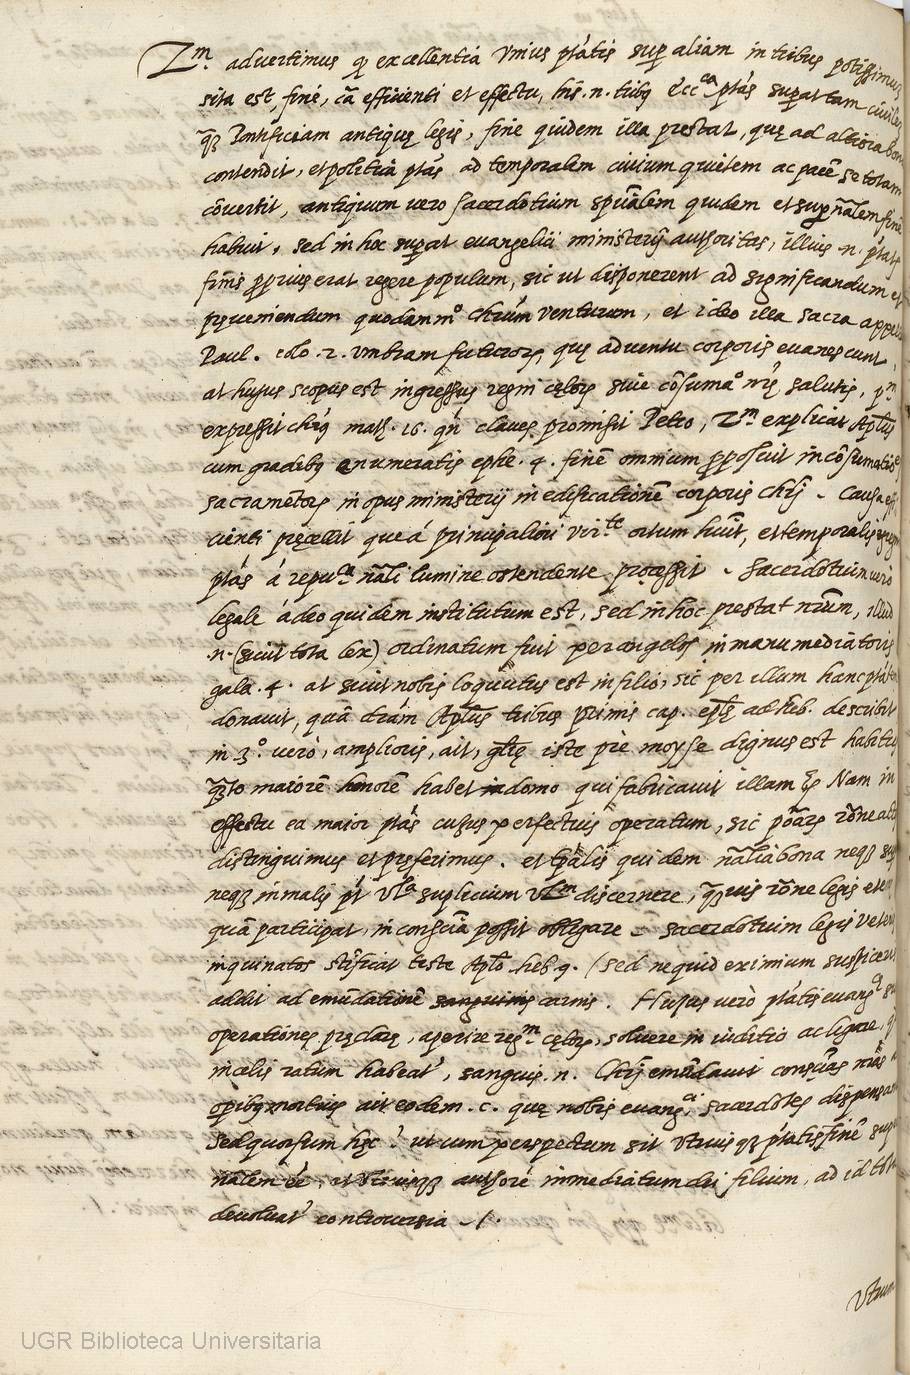 2m. advertimus qp excellentia unius ptátis sup aliam in tribus potissimus
sita est, fine, cā efficienti et effectu, his .n. tribq ecc.ca ptás superat tam civilez
q̄q Pontificiam antiquę legis, fine quidem illa prestat, quę ad altiora
contendit, et politica ptás ad temporalem civium quietem ac pacē se totam
cōvertit, antiquum vero sacerdotium spūalem quidem et supnālem finē
habuit, sed in hoc superat evangelici ministerij authoritas, illius .n. ptátis
finis pprius erat regere populum, sic ut disponerent ad significandum et
pręveniendum quodamm.o Chrūm venturum, et ideo illa sacra
Paul. colo. 2. umbram futuror, quę adventu corporis evanescunt,
at hujus scopus est ingressus regni cęlor sive cōsuma.o nrę salutis, pm
expressit chrs math. 16. qn claves promisit Petro, 2m explicat Aptus
cum gradibq enumeratis ephe. 4. finē omnium pposuit in cōsumatiōe
sacramētor in opus ministerij in edificationē corporis Chri - Causa effi
cienti pręcellit que á principaliori vir.te ortum huit, et temporalis
ptás á repu.ca nāli lumine ostendente processit - Sacerdotium verò
legale á deo quidem institutum est, sed in hoc prestat nrūm, illud
.n. (sicut tota lex) ordinatum fuit per angelos in manu mediatoris
gala. 4. at sicut nobis loquutus est in filio, sic per illum hanc ptátem
donavit, quā etiám Aptus tribus primis cap. epte ad heb. describit
in 3.o verò, amplioris, ait, glię iste prę moyse dignus est habitus
q̄to maiorē honorē habet domo qui fabricavit illam Nam in
effectu ea maior ptás cujus perfectius operatum, sic
distinguimus et pręferimus. et quidem nālia bona neq
neq in malis pt ulla suplicium discernere, q̄vis rōne legis
quā participat, in consciā possit obligare - sacerdotium legis veteris
inquinatos teste Apto heb 9. (sed nequid eximium
addit ad emūdationē sanguinis carnis. Hujus verò ptátis evang.ca
operationes pręclarę, aperire reg.m cęlor, solvere in iuditio ac ligare,
in cœlis ratum habeat, sanguis .n. Chri emūdavit consc̄as
opibq mortuis ait eodem .c. quę nobis evang.ci sacerdotes
Sed quorsum hęc? ut cum perspectum sit utriusq ptátis finē
nālem ee, et utriusq authorē immediatum dei filium, ad id
devolvat controversia -/.
Utrum
UGR Biblioteca Universitaria